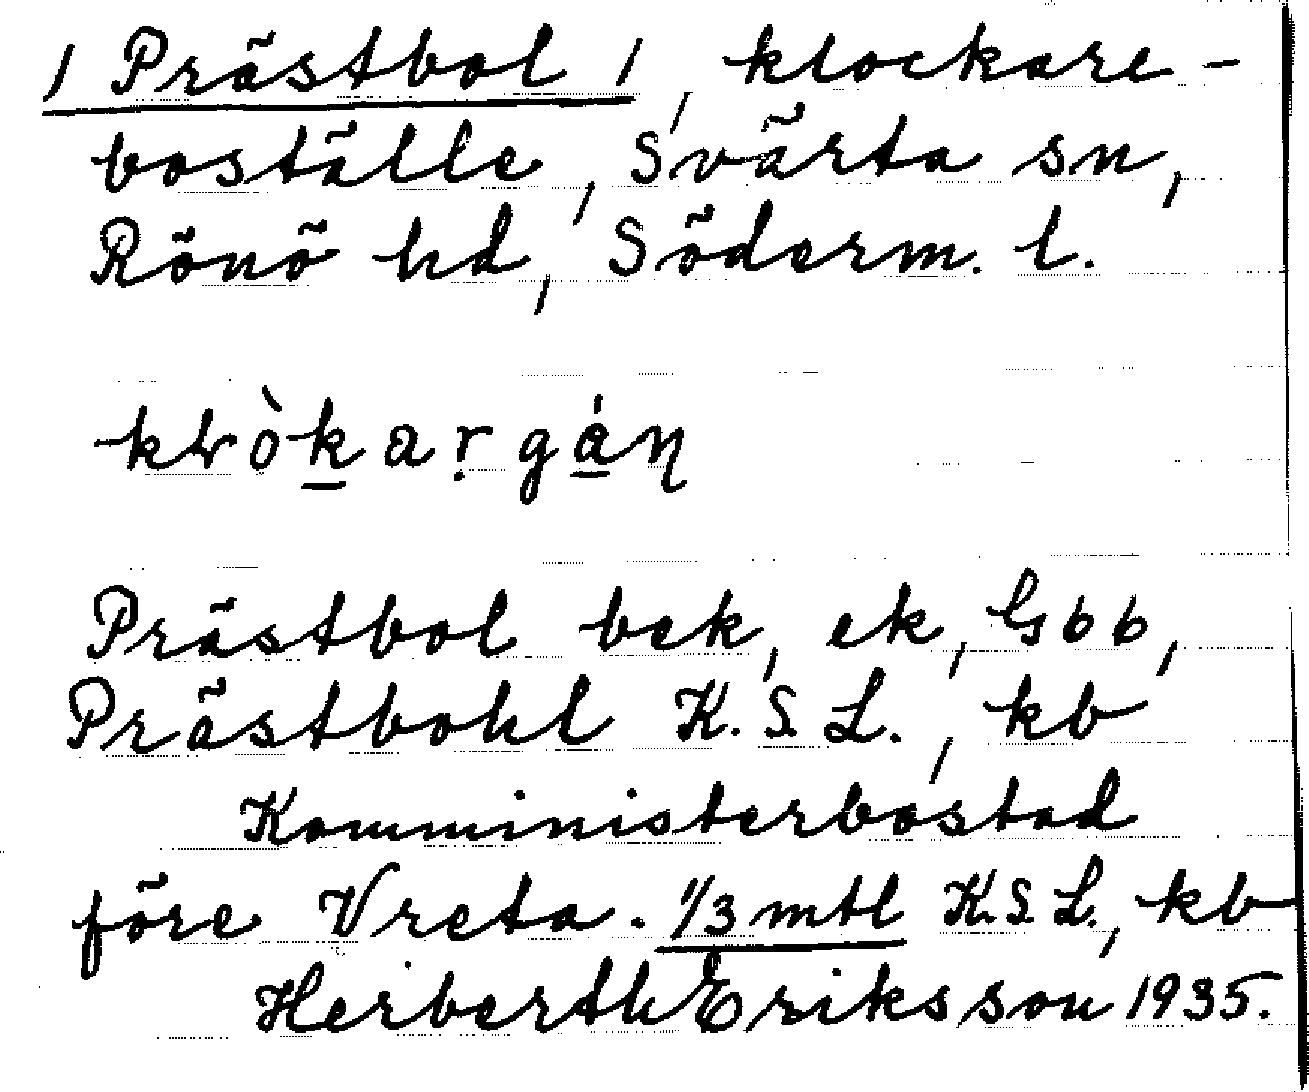 / Prästbol /, klockare-
boställe, Svärta sn,
Rönö hd, Söderm. l.
Prästbol bek, ek, Gbb,
Prästbohl K.S.L., kb
Komministerbostad
före Vreta. 1/3 mtl K.S.L., kb
Herberth Eriksson 1935.